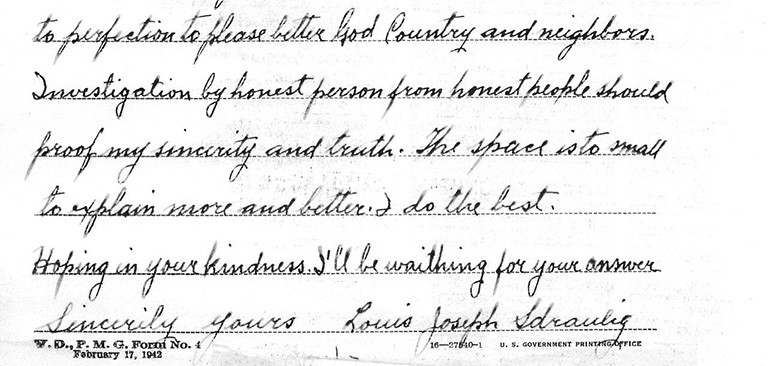 to perfection to please better God Country and neighbors.
Investigation by honest person from honest people should
proof my sincirity and truth. The space is to small
to explain more and better. I do the best.
Hoping in your kindness. I'll be waithing for your answer
Sincerily yours Louis Joseph Sdraulig
W. D., P. M. G. Form No. 4
February 17, 1942
16—27540-1 U. S. GOVERNMENT PRINTING OFFICE